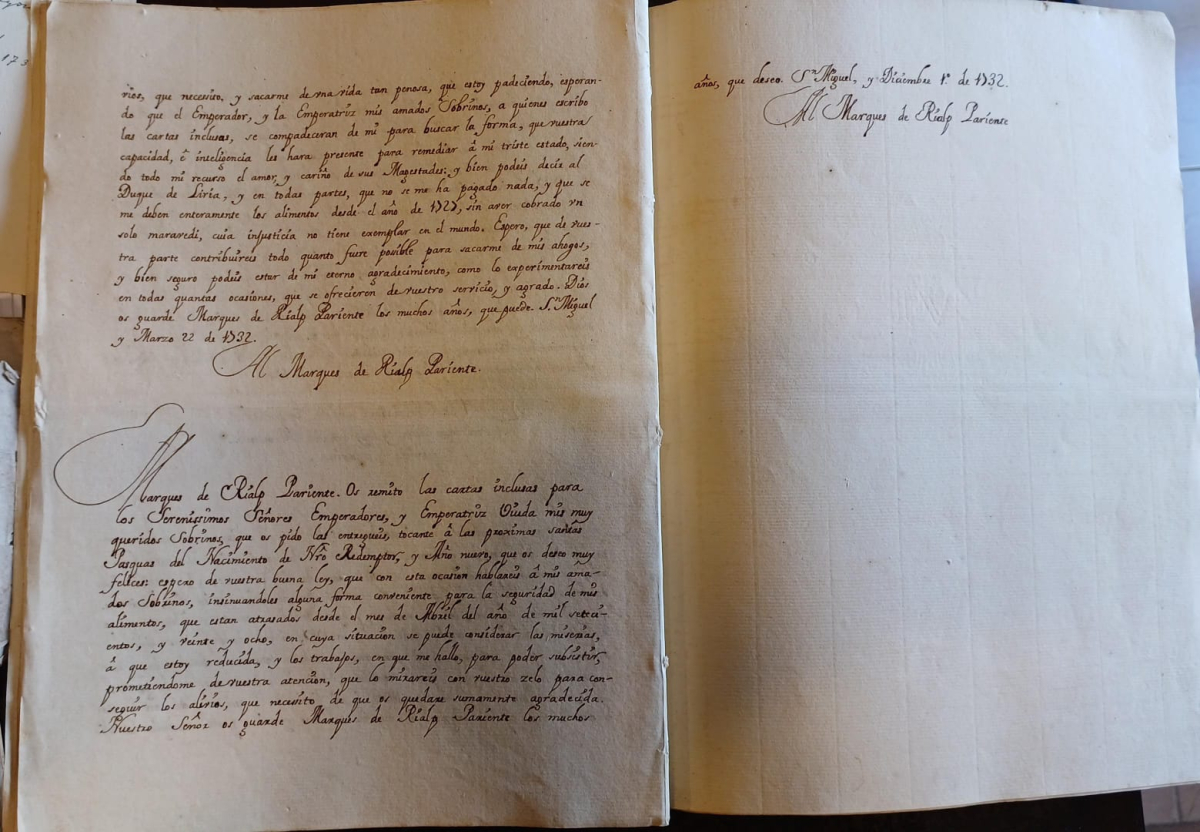 rios, que necessito, y sacarme de vna vida tan penosa, que estoy padeciendo, esperan-
do que el Emperador, y la Emperatriz mis amados Sobrinos, a quienes escribo
las cartas inclusas, se compadeceran de mi para buscar la forma, que vuestra
capacidad, è inteligencia les hara presente para remediar â mi triste estado, sien-
do todo mi recurso el amor, y cariño de sus Magestades: y bien podeis decir al
Duque de Liria, y en todas partes, que no se me ha pagado nada, y que se
me deben enteramente los alimentos desde el año de 1727, sin aver cobrado vn
solo maravedi, cuia injusticia no tiene exemplar en el mundo. Espero, que de vues-
tra parte contribuireis todo quanto fuere posible para sacarme de mis ahogos,
y bien seguro podeis estar de mi eterno agradecimiento, como lo experimentareis
en todas quantas ocasiones, que se ofrecieren de vuestro servicio, y agrado. Dios
os guarde Marques de Rialp Pariente los muchos años, que puede. Sn Miguel
y Marzo 22 de 1732.
Al Marques de Rialp Pariente.
Marques de Rialp Pariente. Os remito las cartas inclusas para
los Serenissimos Señores Emperadores, y Emperatriz Viuda mis muy
queridos Sobrinos, que os pido las entregueis, tocante â las proximas santas
Pasquas del Nacimiento de Nro Redemptor, y Año nuevo, que os deseo muy
felices: espero de vuestra buena ley, que con esta ocasion hablareis â mis ama-
dos Sobrinos, insinuandoles alguna forma conveniente para la seguridad de mis
alimentos, que estan atrasados desde el mes de Abril del año de mil seteci-
entos, y veinte y ocho, en cuya situacion se puede considerar las miserias,
â que estoy reducida, y los trabajos, en que me hallo, para poder subsistir,
prometiendome de vuestra atencion, que lo mirareis con vuestro zelo para con-
seguir los alivios, que necessito de que os quedare sumamente agradecida.
Nuestro Señor os guarde Marques de Rialp Pariente los muchos
años, que deseo. Sn Miguel, y Diciembre 1º de 1732.
Al Marques de Rialp Pariente